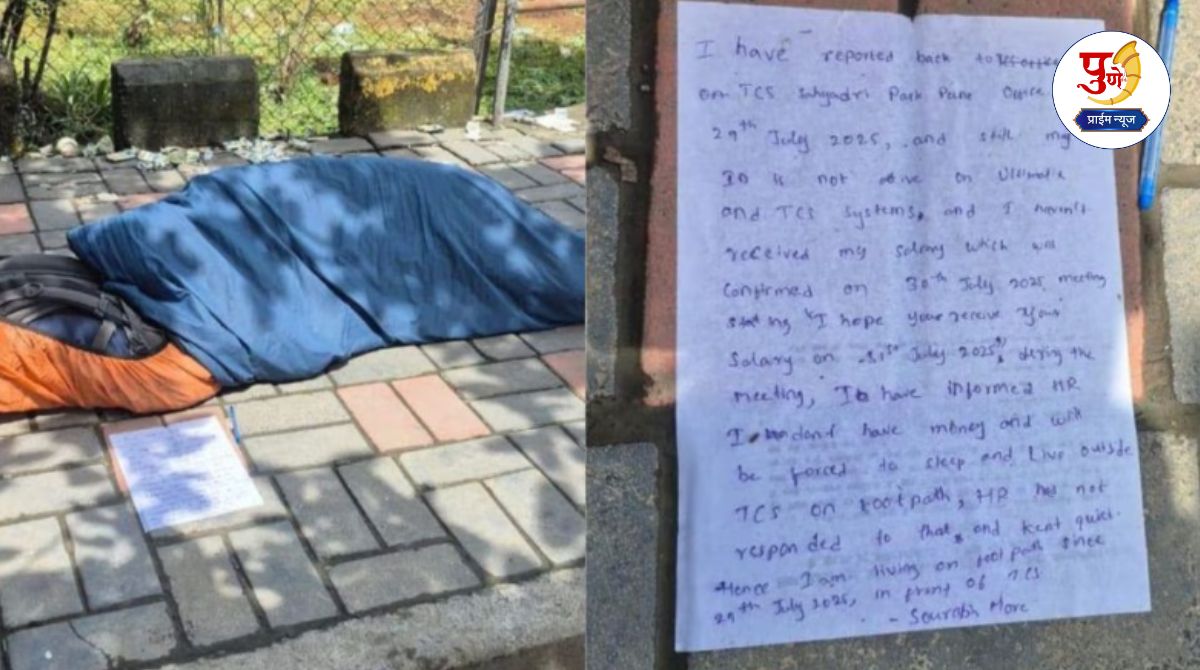 I have reported back to
on TCS Sahyadri Park Pune Office
29th July 2025, and still my
ID is not active on Ultimatix
and TCS systems, and I haven't
received my salary which was
Confirmed on 30th July 2025 meeting
"I hope you receive your
Salary on 31st July 2025", during the
meeting, I have informed HR
I don't have money and will
be forced to sleep and Live outside
TCS on Footpath, HR has not
responded to that, and kept quiet.
Hence I am living on footpath since
29th July 2025, in front of TCS
- Sourabh More
पुणे
प्राईम न्यूज